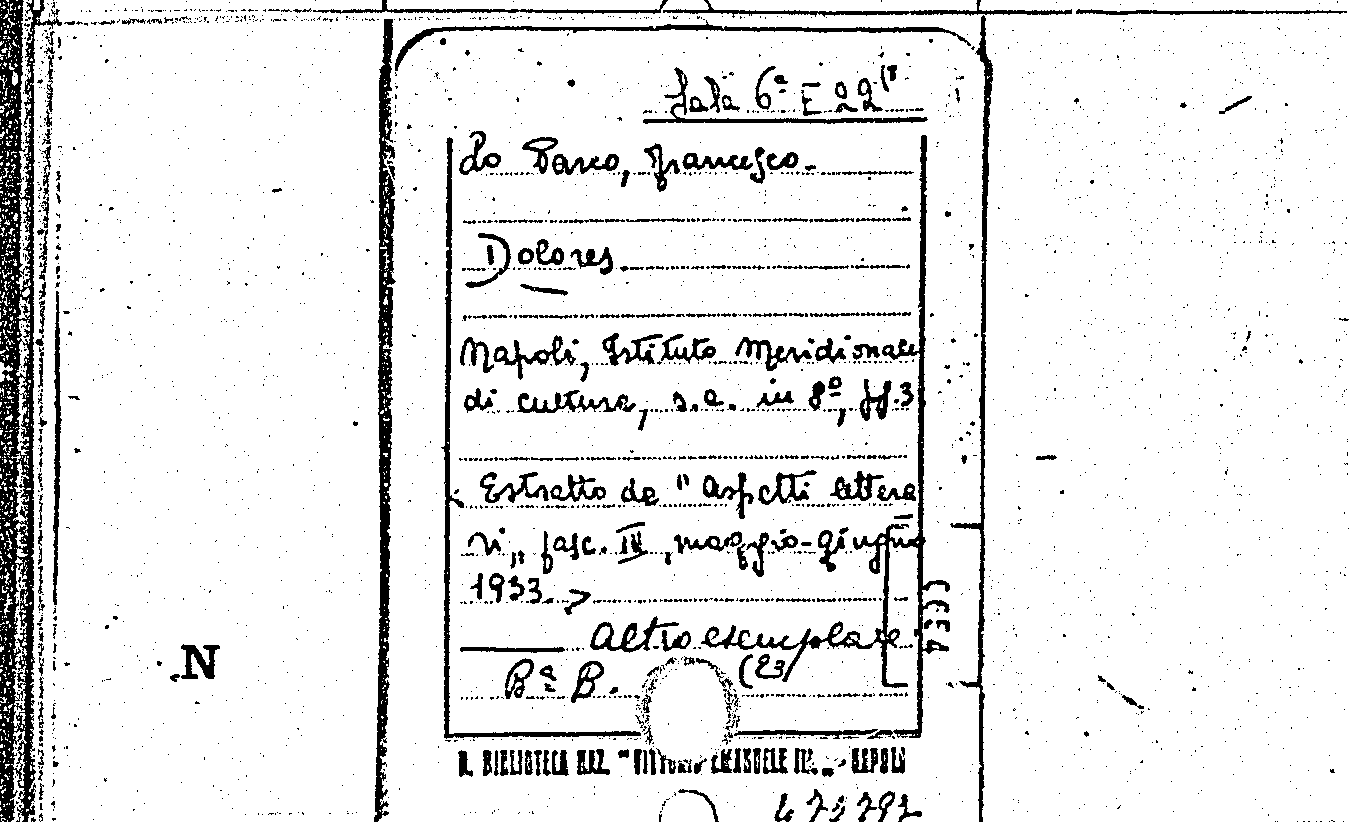 Sala 6ª E 22(8
Lo Parco, Francesco.
Dolores.
Napoli, Istituto Meridionale
di cultura, s.a. in 8º, ff. 3
< Estratto da "Aspetti lettera
ri„ fasc. IV, maggio-giugno
1933. >
Altro esemplare.
Bª B. (23/
N
R. BIBLIOTECA NAZ. "VITTORIO EMANUELE III„ - NAPOLI